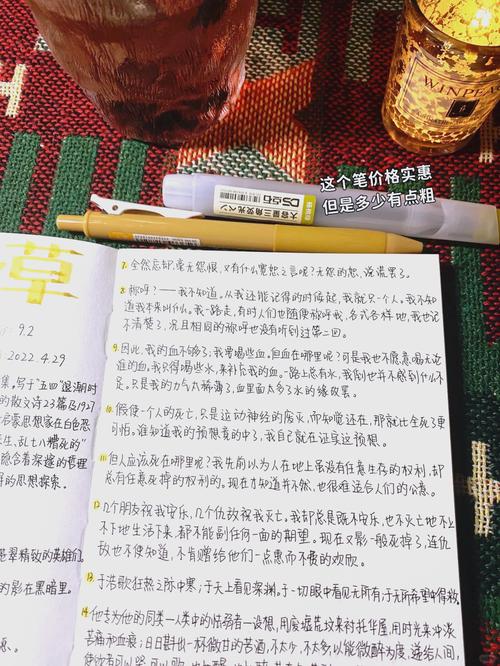 WINPEA
这个笔价格实惠
但是多少有点粗
DS点石
大容量三角荧光ペン
草
9.2
2022.4.29
集。写于“五四”退潮时
的散文诗23篇及1927
启蒙思想家在白色恐
生、乱七八糟死的”
隐含着深邃的哲理
的思想探索。
翠精致的英雄们
的影在黑暗里。
7. 全然忘却,毫无怨恨,又有什么宽恕之言呢?无怨的恕,说谎罢了。
8. 称呼?——我不知道。从我还能记得的时候起,我就只一个人。我不知
道我本来叫什么。我一路走,有时人们也随便称呼我,各式各样地,我也记
不清楚了,况且相同的称呼也没有听到过第二回。
9. 因此,我的血不够了;我要喝些血。但血在哪里呢?可是我也不愿意喝无论
谁的血。我只得喝些水,来补充我的血。一路上总有水,我倒也并不感到什么不
足。只是我的力气太稀薄了,血里面太多了水的缘故罢。
10. 假使一个人的死亡,只是运动神经的废灭,而知觉还在,那就比全死了更
可怕。谁知道我的预想竟的中了,我自己就在证实这预想。
11. 但人应该死在哪里呢?我先前以为人在地上虽没有任意生存的权利,却
总有任意死掉的权利的。现在才知道并不然,也很难适合人们的公意。
12. 几个朋友祝我安乐,几个仇敌祝我灭亡。我却总是既不安乐,也不灭亡地不上
不下地生活下来,都不能副任何一面的期望。现在又影一般死掉了,连仇
敌也不使知道,不肯赠给他们一点惠而不费的欢欣。
13. 于浩歌狂热之际中寒;于天上看见深渊。于一切眼中看见无所有;于无所希望中得救。
14. 他专为他的同类—人类中的怯弱者—设想,用废墟荒坟来衬托华屋,用时光来冲淡
苦痛和血痕;日日斟出一杯微甘的苦酒,不太少,不太多,以能微醉为度,递给人间,